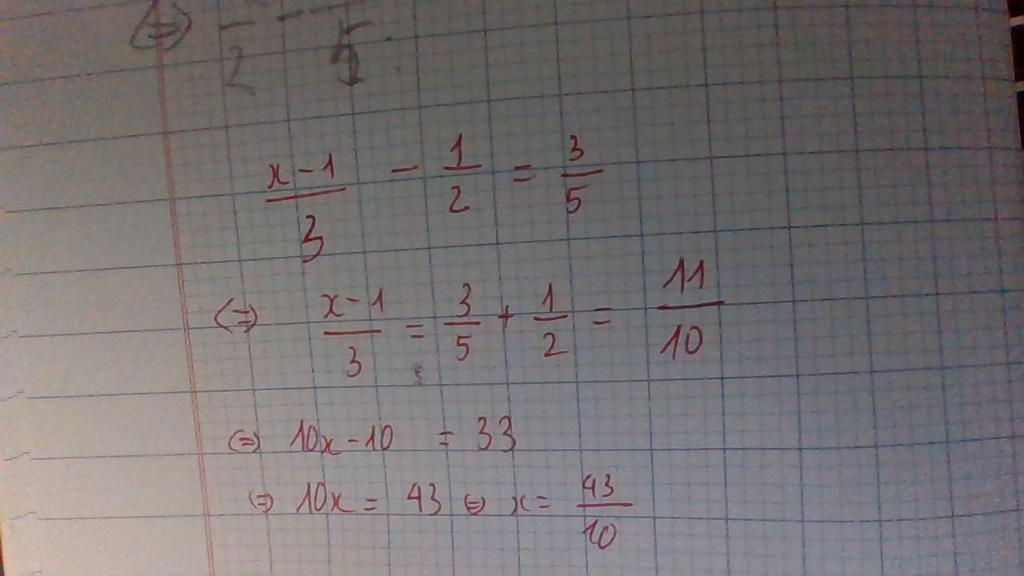 (=) — - — 
2 5
x-1/3 - 1/2 = 3/5
(=) x-1/3 = 3/5 + 1/2 = 11/10
(=) 10x-10 = 33
(=) 10x = 43 (=) x = 43/10